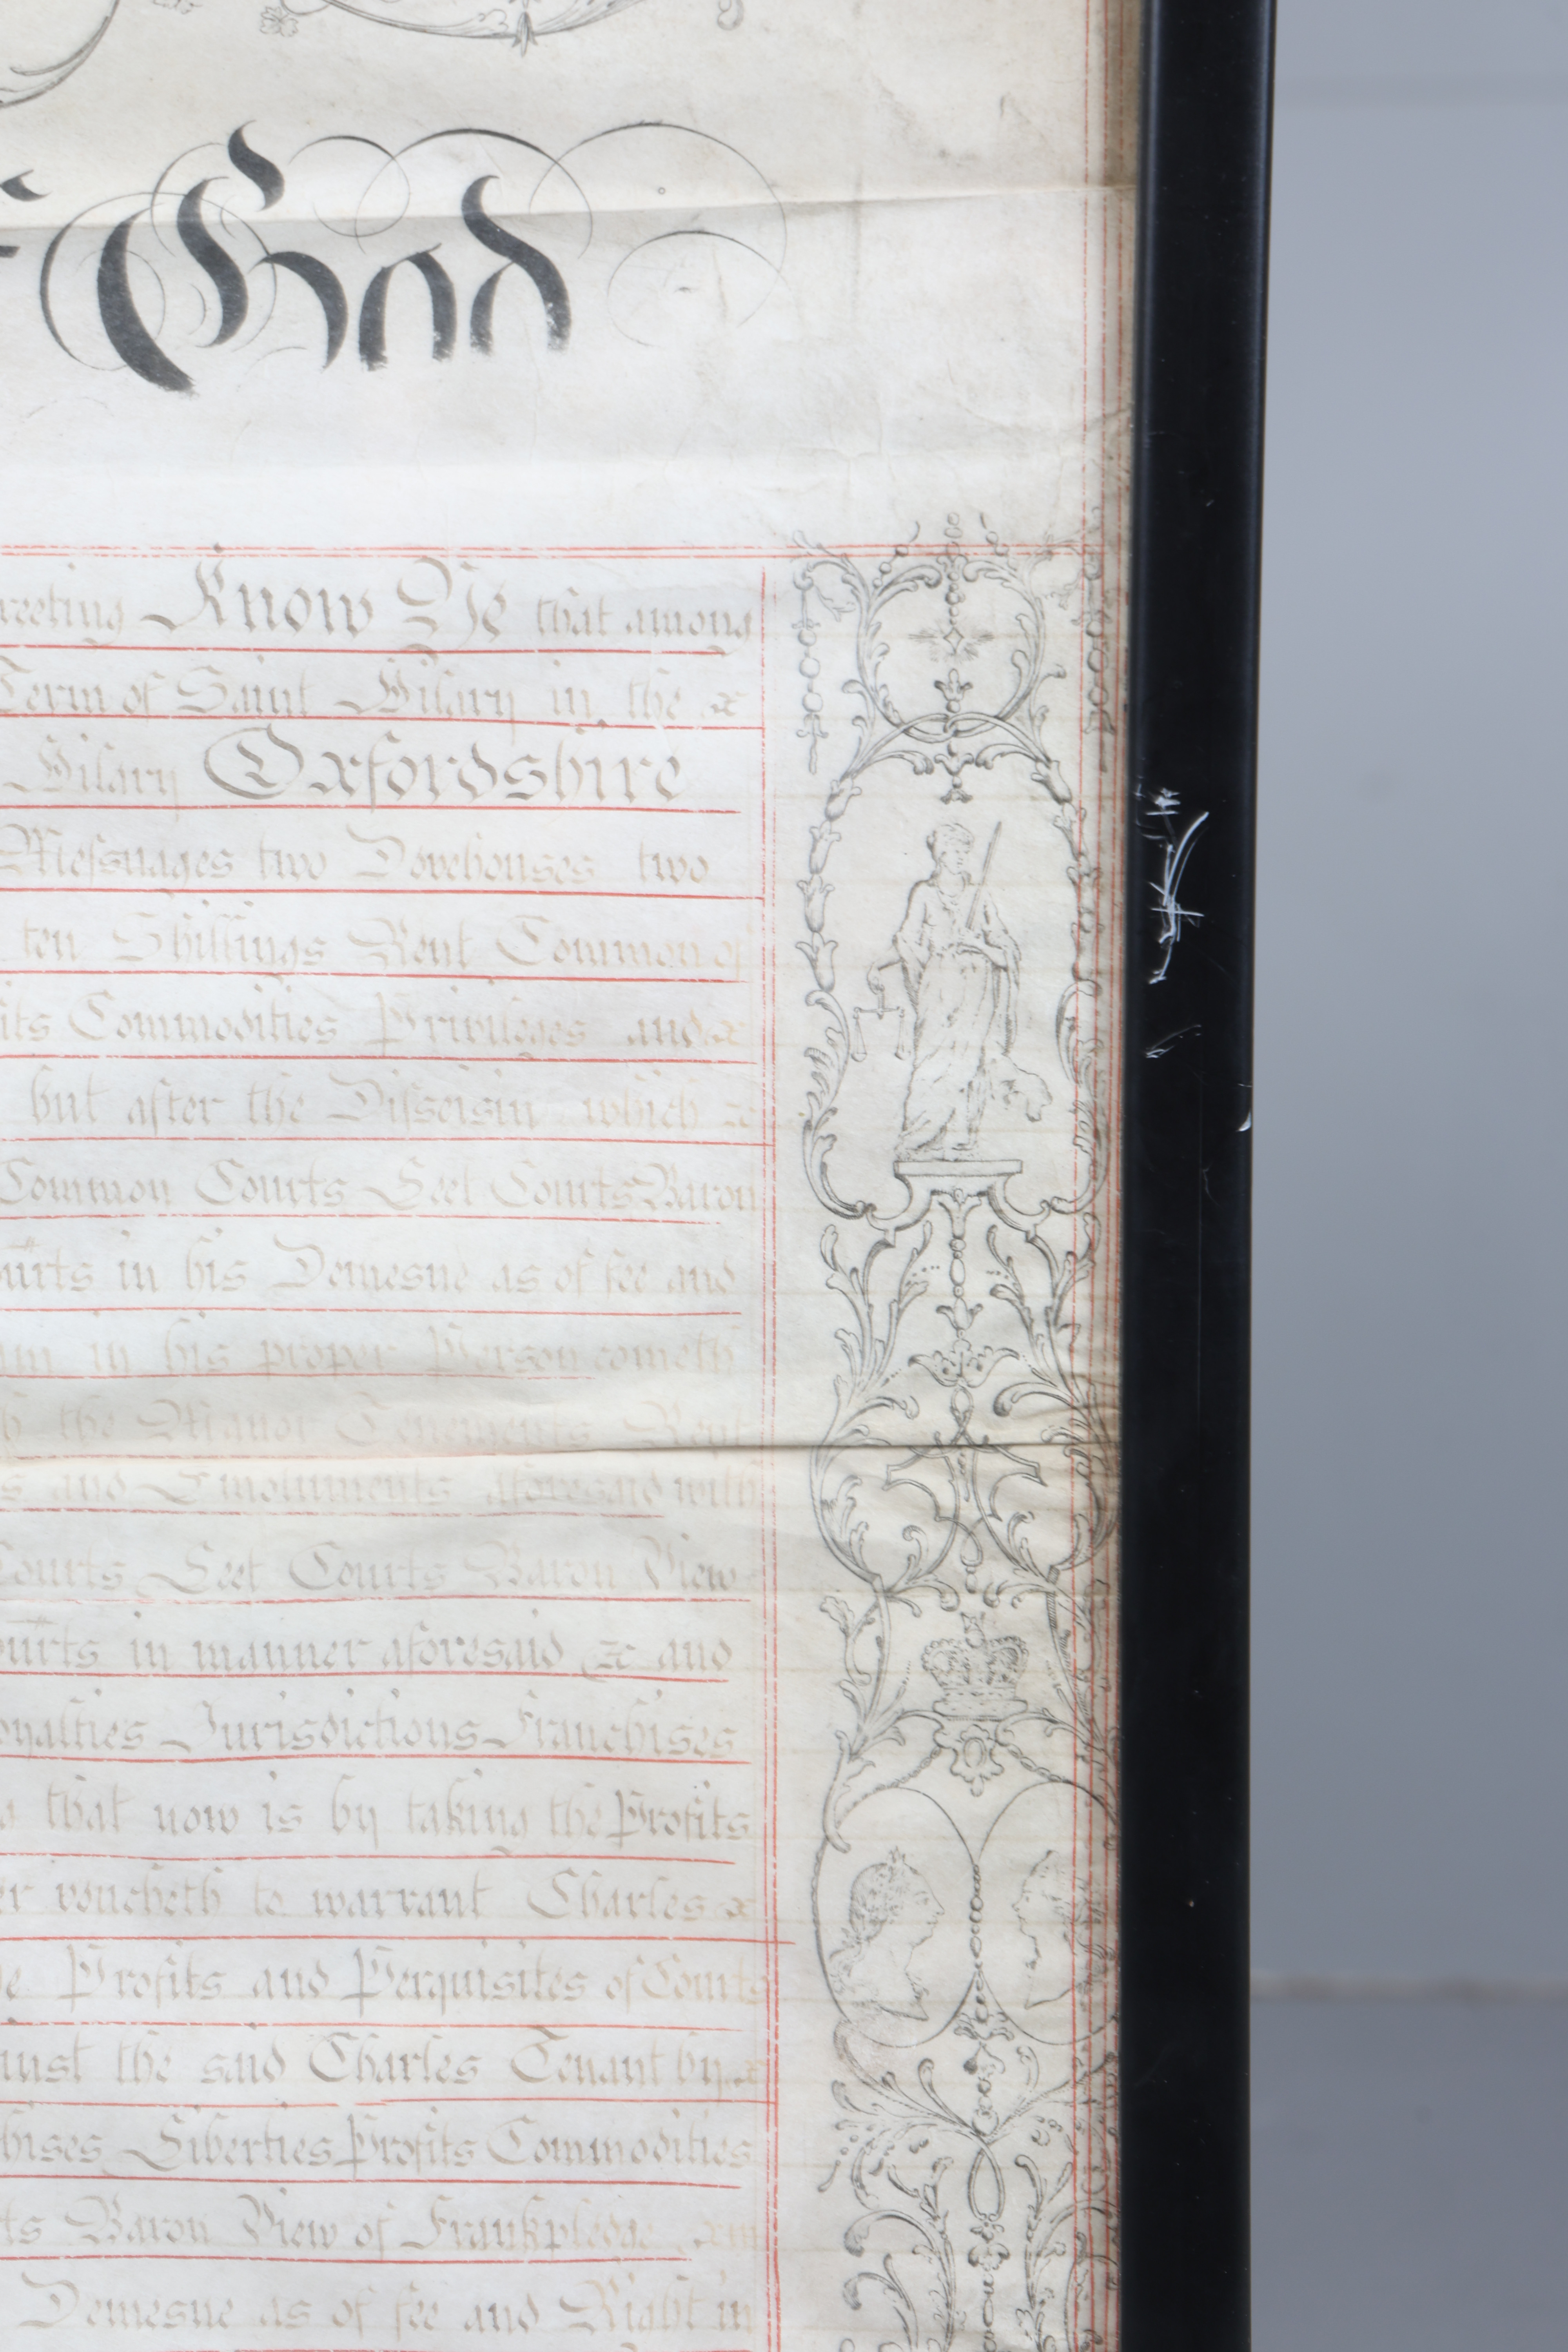 God
reeting Know Ye that among
Term of Saint Hilary in the &
Hilary Oxfordshire
Messuages two Dovehouses two
ten Shillings Rent Common of
its Commodities Privileges and &
but after the Disseisin which &
Common Courts Leet Courts Baron
ourts in his Demesne as of fee and
in his proper Person cometh
the Manor Tenements Rent
s and Emoluments aforesaid with
Courts Leet Courts Baron View
ourts in manner aforesaid & and
oyalties Jurisdictions Franchises
that now is by taking the Profits
er voucheth to warrant Charles &
e Profits and Perquisites of Courts
inst the said Charles Tenant by &
hises Liberties Profits Commodities
ts Baron View of Frankpledge
Demesne as of fee and Right in